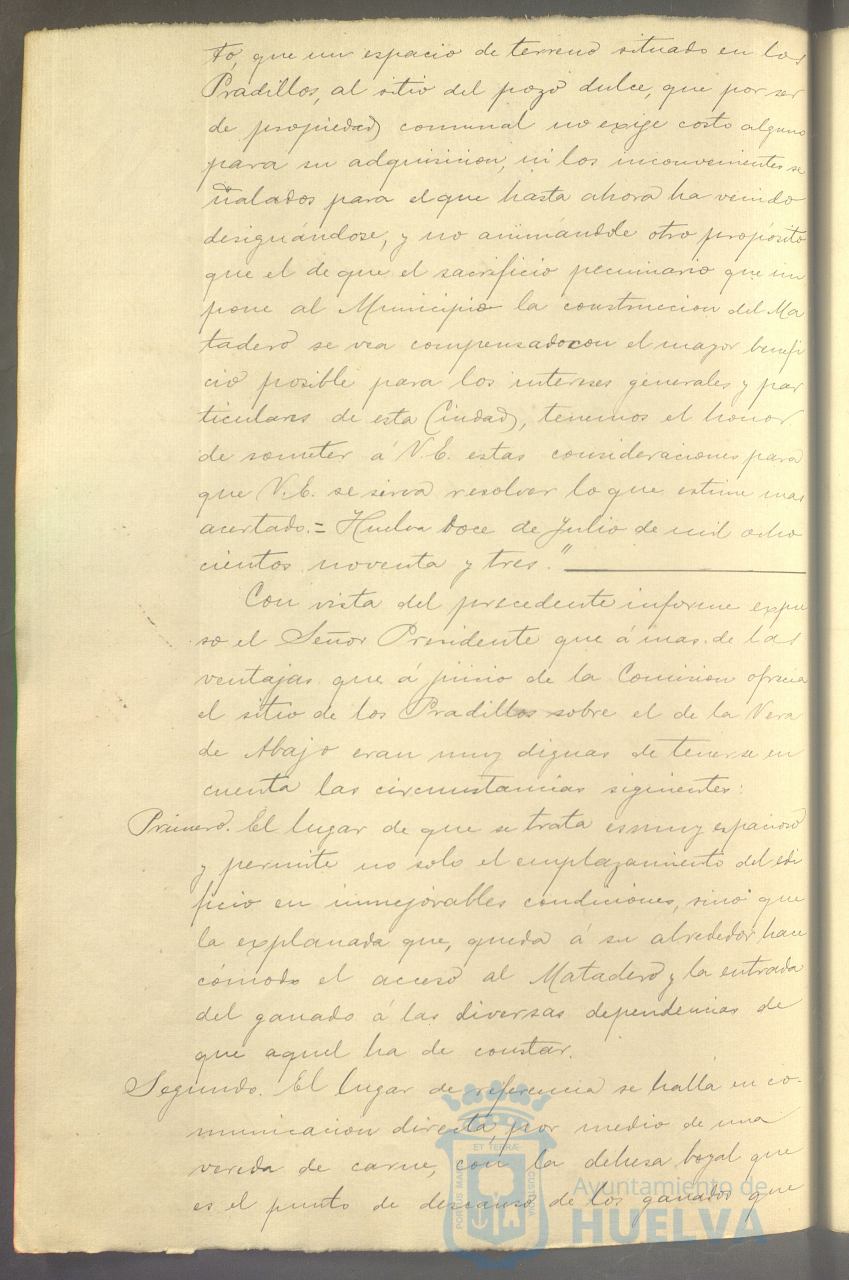 to, que un espacio de terreno situado en los
Pradillos, al sitio del pozo dulce, que por ser
de propiedad comunal no exige costo alguno
para su adquisicion, ni los inconvenientes se
ñalados para el que hasta ahora ha venido
designándose, y no animándole otro propósito
que el de que el sacrificio pecuniario que im
pone al Municipio la construccion del Ma
tadero se vea compensado con el mayor benefi
cio posible para los intereses generales y par
ticulares de esta Ciudad, tenemos el honor
de someter á V.E. estas consideraciones para
que V.E. se sirva resolver lo que estime mas
acertado.= Huelva doce de Julio de mil ocho
cientos noventa y tres."
Con vista del precedente informe expu
so el Señor Presidente que á mas de las
ventajas que á juicio de la Comision ofrecia
el sitio de los Pradillos sobre el de la Vera
de Abajo eran muy dignas de tenerse en
cuenta las circunstancias siguientes:
Primero. El lugar de que se trata es muy espacioso
y permite no solo el emplazamiento del edi
ficio en inmejorables condiciones, sinó que
la explanada que, queda á su alrededor hace
cómodo el acceso al Matadero y la entrada
del ganado á las diversas dependencias de
que aquel ha de constar.
Segundo. El lugar de referencia se halla en co-
municacion directa, por medio de una
vereda de carne, con la dehesa boyal que
es el punto de descanso de los ganados que
ET TERRÆ
PORTUS MARIS
CUSTODIA
Ayuntamiento de
HUELVA